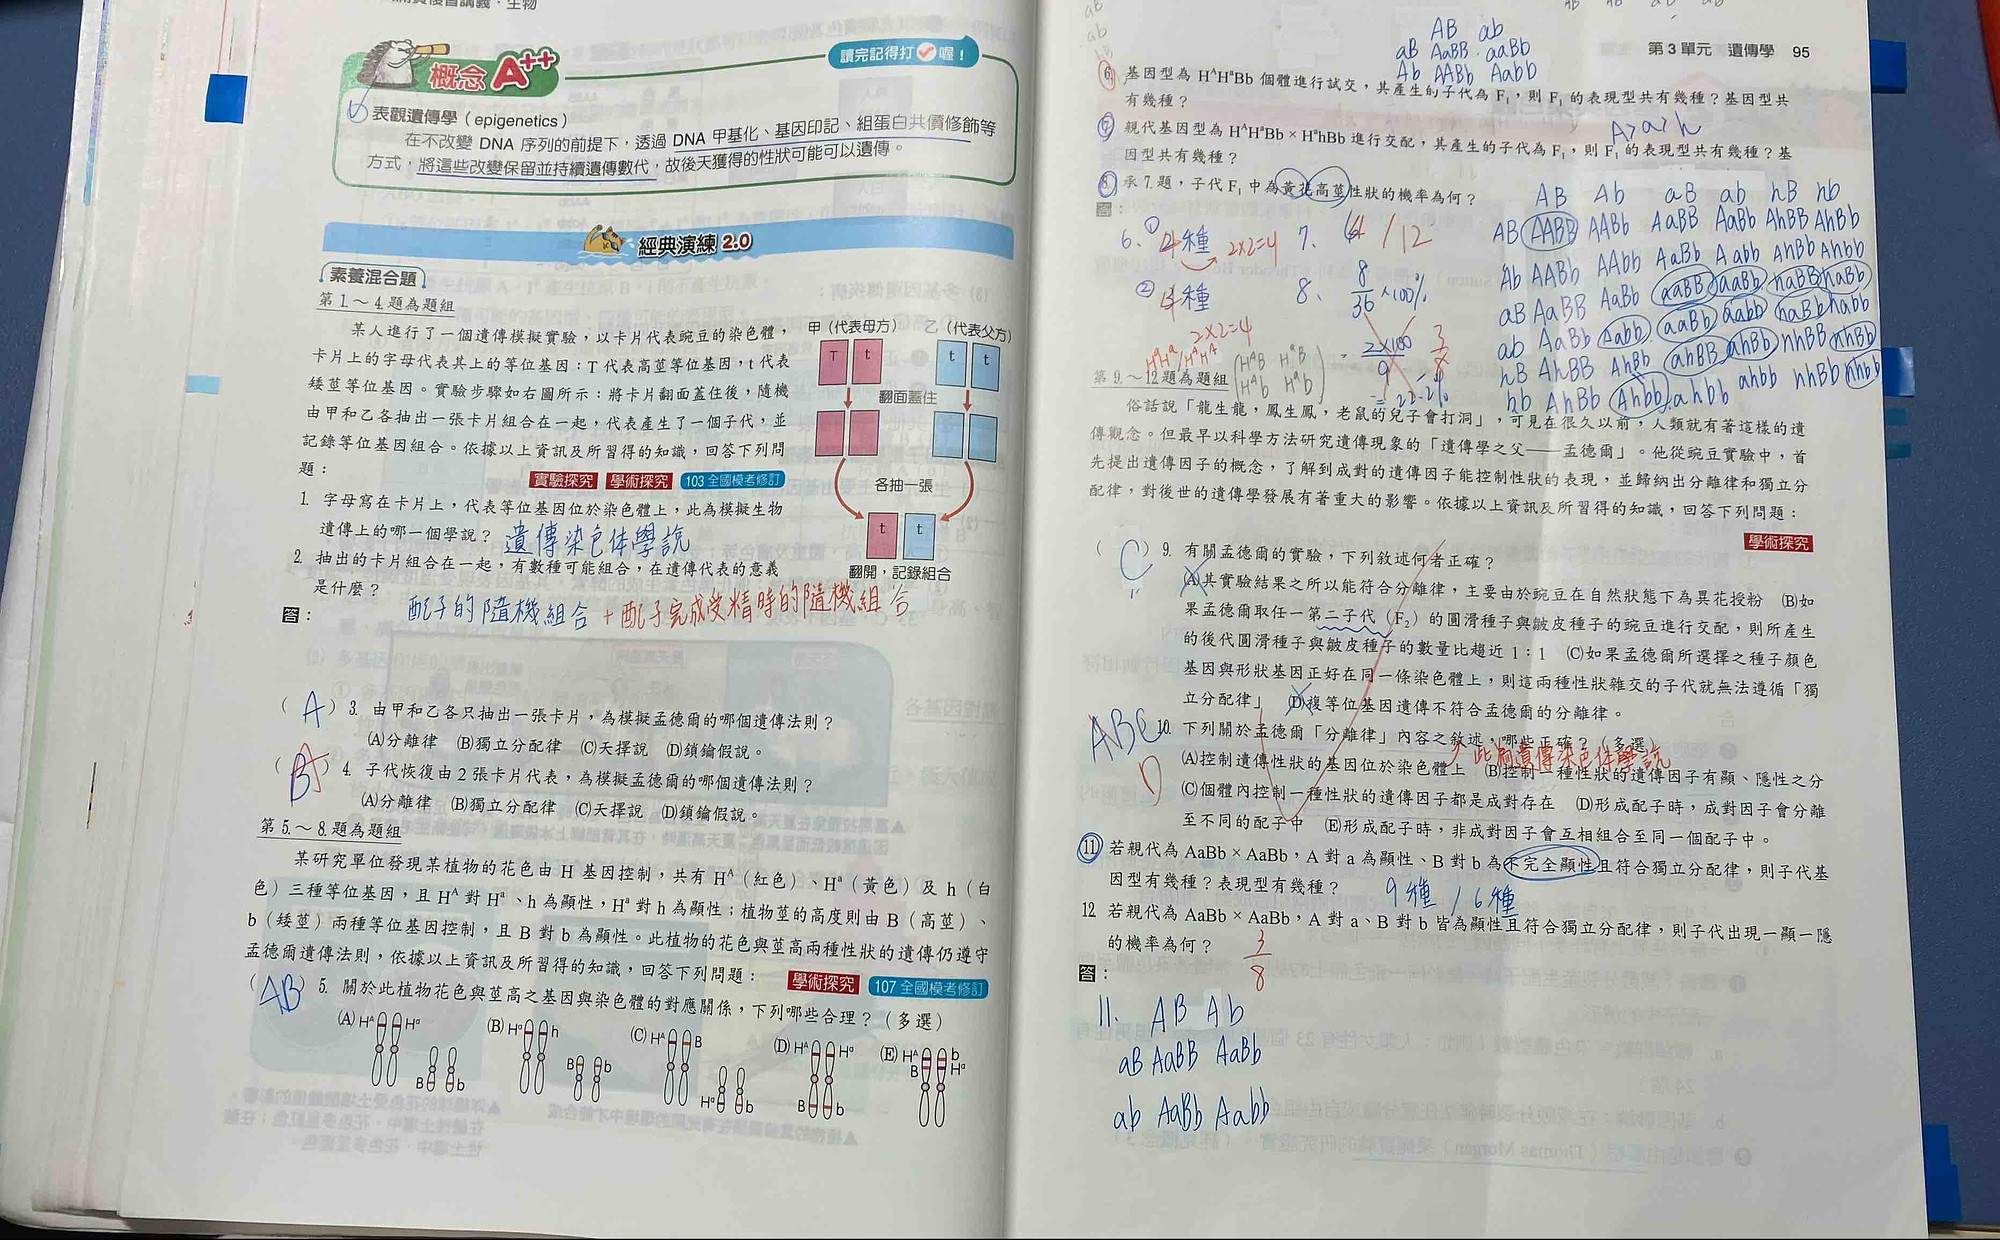 概念 A++
讀完記得打 喔！
表觀遺傳學（epigenetics）
在不改變 DNA 序列的前提下，透過 DNA 甲基化、基因印記、組蛋白共價修飾等
方式，將這些改變保留並持續遺傳數代，故後天獲得的性狀可能可以遺傳。
經典演練 2.0
素養混合題
第 1.～4. 題為題組
某人進行了一個遺傳模擬實驗，以卡片代表豌豆的染色體，
卡片上的字母代表其上的等位基因：T 代表高莖等位基因，t 代表
矮莖等位基因。實驗步驟如右圖所示：將卡片翻面蓋住後，隨機
由甲和乙各抽出一張卡片組合在一起，代表產生了一個子代，並
記錄等位基因組合。依據以上資訊及所習得的知識，回答下列問
題：
實驗探究 學術探究 103 全國模考修訂
甲（代表母方） 乙（代表父方）
T t t t
翻面蓋住
各抽一張
t t
翻開，記錄組合
1. 字母寫在卡片上，代表等位基因位於染色體上，此為模擬生物
遺傳上的哪一個學說？ 遺傳染色体學說
2. 抽出的卡片組合在一起，有數種可能組合，在遺傳代表的意義
是什麼？
答： 配子的隨機組合 + 配子完成受精時的隨機組合
（ A ）3. 由甲和乙各只抽出一張卡片，為模擬孟德爾的哪個遺傳法則？
(A)分離律 (B)獨立分配律 (C)天擇說 (D)鎖鑰假說。
（ B A ）4. 子代恢復由 2 張卡片代表，為模擬孟德爾的哪個遺傳法則？
(A)分離律 (B)獨立分配律 (C)天擇說 (D)鎖鑰假說。
第 5.～8. 題為題組
某研究單位發現某植物的花色由 H 基因控制，共有 Hᴬ（紅色）、Hᵃ（黃色）及 h（白
色）三種等位基因，且 Hᴬ 對 Hᵃ、h 為顯性，Hᵃ 對 h 為顯性；植物莖的高度則由 B（高莖）、
b（矮莖）兩種等位基因控制，且 B 對 b 為顯性。此植物的花色與莖高兩種性狀的遺傳仍遵守
孟德爾遺傳法則，依據以上資訊及所習得的知識，回答下列問題：
學術探究 107 全國模考修訂
（ AB ）5. 關於此植物花色與莖高之基因與染色體的對應關係，下列哪些合理？（多選）
(A) Hᴬ Hᵃ B b
(B) Hᵃ h B b
(C) Hᴬ B Hᵃ b
(D) Hᴬ Hᵃ B b
(E) Hᴬ b B Hᵃ
第 3 單元 遺傳學 95
AB ab
aB AaBB aaBb
Ab AABb Aabb
6. 基因型為 HᴬHᵃBb 個體進行試交，其產生的子代為 F₁，則 F₁ 的表現型共有幾種？基因型共
有幾種？
A>a>h
7. 親代基因型為 HᴬHᵃBb × HᵃhBb 進行交配，其產生的子代為 F₁，則 F₁ 的表現型共有幾種？基
因型共有幾種？
8. 承 7. 題，子代 F₁ 中為黃花高莖性狀的機率為何？
答：
6. ① 4種 2×2=4
② 4種
2×2=4
7. 4 / 12
8. 8/36 ×100%
= 2×100/9
3/8
AB Ab aB ab hB hb
AB AABB AABb AaBB AaBb AhBB AhBb
Ab AABb AAbb AaBb Aabb AhBb Ahbb
aB AaBB AaBb aaBB aaBb haBB haBb
ab AaBb Aabb aaBb aabb haBb habb
hB AhBB AhBb ahBB ahBb hhBB hhBb
hb AhBb Ahbb ahBb ahbb hhBb hhbb
第 9.～12. 題為題組
俗話說「龍生龍，鳳生鳳，老鼠的兒子會打洞」，可見在很久以前，人類就有著這樣的遺
傳觀念。但最早以科學方法研究遺傳現象的「遺傳學之父——孟德爾」。他從豌豆實驗中，首
先提出遺傳因子的概念，了解到成對的遺傳因子能控制性狀的表現，並歸納出分離律和獨立分
配律，對後世的遺傳學發展有著重大的影響。依據以上資訊及所習得的知識，回答下列問題：
學術探究
（ C ）9. 有關孟德爾的實驗，下列敘述何者正確？
(A)其實驗結果之所以能符合分離律，主要由於豌豆在自然狀態下為異花授粉 (B)如
果孟德爾取任一第二子代（F₂）的圓滑種子與皺皮種子的豌豆進行交配，則所產生
的後代圓滑種子與皺皮種子的數量比趨近 1：1 (C)如果孟德爾所選擇之種子顏色
基因與形狀基因正好在同一條染色體上，則這兩種性狀雜交的子代就無法遵循「獨
立分配律」 (D)複等位基因遺傳不符合孟德爾的分離律。
ABC D 10. 下列關於孟德爾「分離律」內容之敘述，哪些正確？（多選）
此為遺傳染色体學說
(A)控制遺傳性狀的基因位於染色體上 (B)控制一種性狀的遺傳因子有顯、隱性之分
(C)個體內控制一種性狀的遺傳因子都是成對存在 (D)形成配子時，成對因子會分離
至不同的配子中 (E)形成配子時，非成對因子會互相組合至同一個配子中。
11. 若親代為 AaBb × AaBb，A 對 a 為顯性、B 對 b 為不完全顯性且符合獨立分配律，則子代基
因型有幾種？表現型有幾種？ 9種 / 6種
12. 若親代為 AaBb × AaBb，A 對 a、B 對 b 皆為顯性且符合獨立分配律，則子代出現一顯一隱
的機率為何？ 3/8
答：
11. AB Ab
aB AaBB AaBb
ab AaBb Aabb